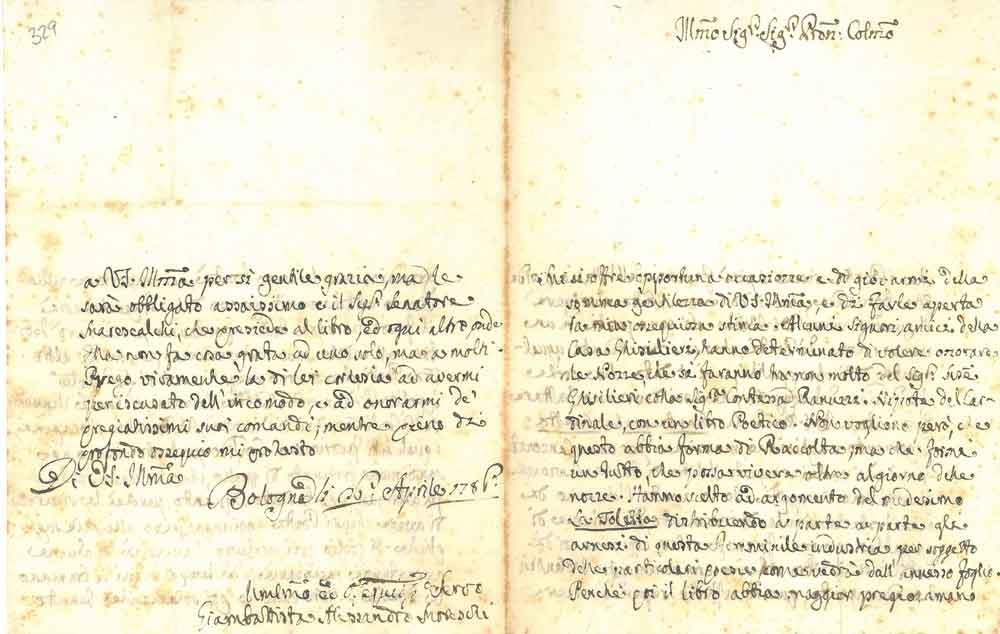 Illmo Sigr. Sigr. Pron: Colmo
Mi si offre opportuna occasione e di giovarmi della
somma gentilezza di VS. Illma, e di farle aperta
la mia ossequiosa stima. Alcuni Signori, amici della
Casa Ghisilieri, hanno determinato di volere onorare
le Nozze, che si faranno fra non molto del Sigr.
Ghisilieri colla Sigra Contessa Ranuzzi. Nipote del Car-
dinale, con un libro Poetico. Non vogliono però, che
questo abbia forma di Raccolta, ma che formi
un tutto, che possa vivere oltre al giorno delle
nozze. Hanno scelto ad argomento del medesimo
La Toletta distribuendo a parte a parte gli
arnesi di questa femminile industria per soggetto
delle particolari poesie come vedrà dall'annesso foglio.
Perchè poi il libro abbia maggior pregio amano
329
a VS. Illma per sì gentile grazia, ma le
sarà obbligato assaissimo e il Sigr. Senatore
Marescalchi, che presiede al libro, ed ogni altro onde
Ella non fa cosa grata ad uno solo, ma a molti.
Prego vivamente la di lei cortesia ad avermi
per iscusato dell'incomodo, e ad onorarmi de'
pregiatissimi suoi comandi; mentre pieno di
profondo ossequio mi protesto
Di VS. Illma
Bologna li Aprile 1786.
Umilmo ed Servo
Giambattista Alessandro Moreschi